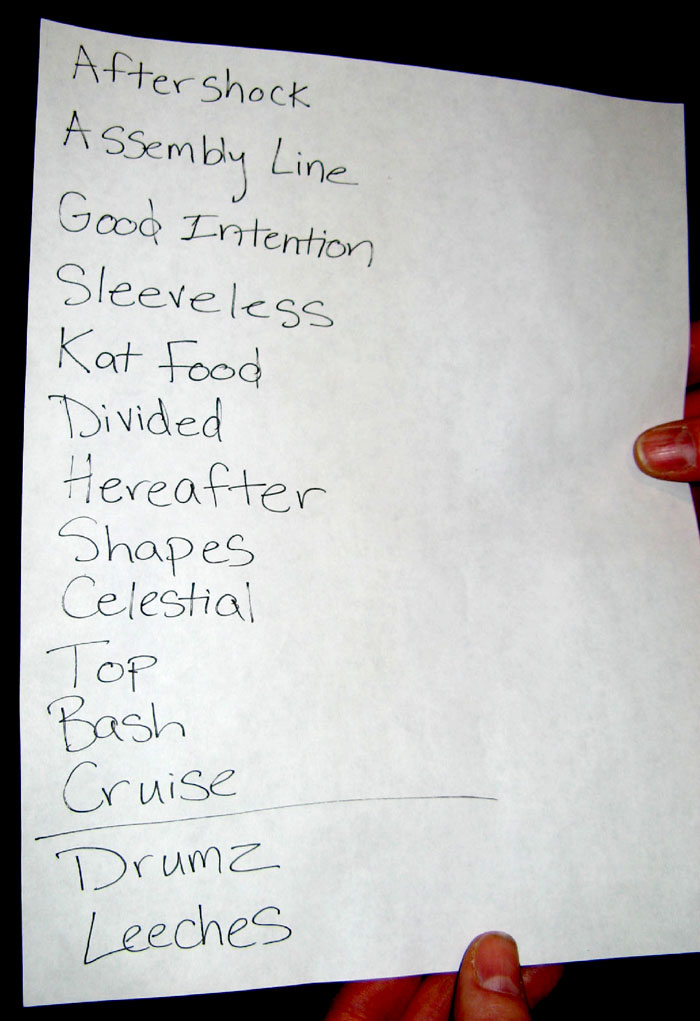 Aftershock
Assembly Line
Good Intention
Sleeveless
Kat Food
Divided
Hereafter
Shapes
Celestial
Top
Bash
Cruise
Drumz
Leeches